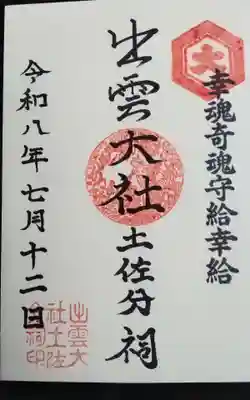 幸魂奇魂守給幸給
大
出雲大社土佐分祠
令和八年七月十二日
出雲大
社土佐
分祠印